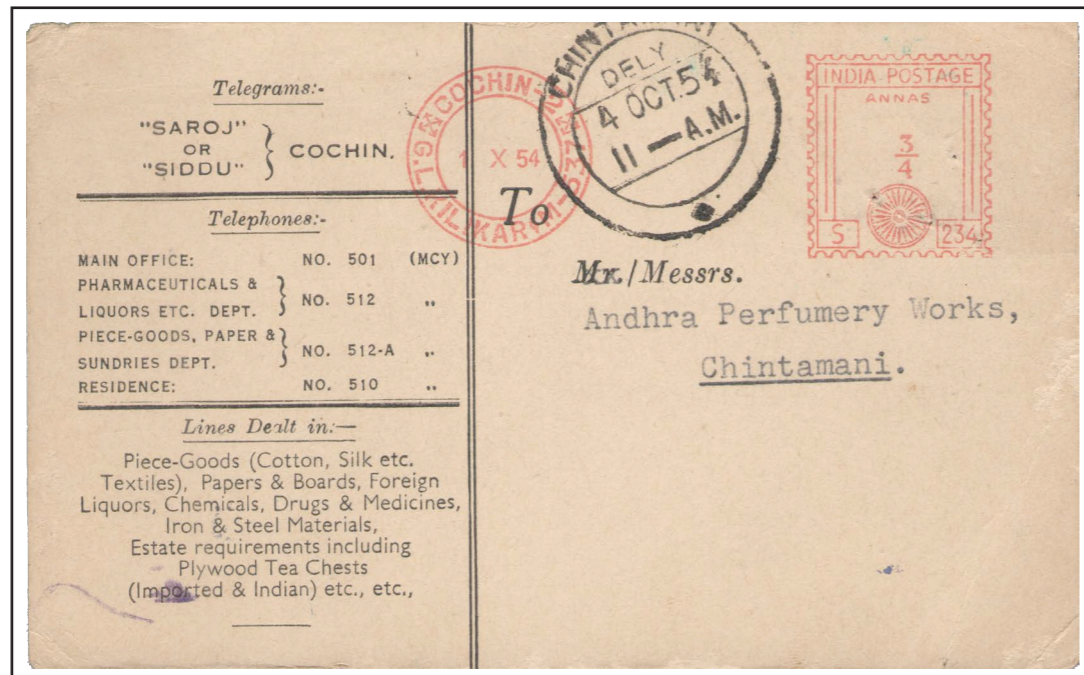 Telegrams:-
"SAROJ"
OR
"SIDDU"
COCHIN.
Telephones:-
MAIN OFFICE: NO. 501 (MCY)
PHARMACEUTICALS &
LIQUORS ETC. DEPT. NO. 512 "
PIECE-GOODS, PAPER &
SUNDRIES DEPT. NO. 512-A "
RESIDENCE: NO. 510 "
Lines Dealt in:—
Piece-Goods (Cotton, Silk etc.
Textiles), Papers & Boards, Foreign
Liquors, Chemicals, Drugs & Medicines,
Iron & Steel Materials,
Estate requirements including
Plywood Tea Chests
(Imported & Indian) etc., etc.,
COCHIN
X 54
CHINTAMANI
DELY.
4 OCT.54
11 — A.M.
INDIA POSTAGE
ANNAS
3/4
S 234
To
Mr./Messrs.
Andhra Perfumery Works,
Chintamani.